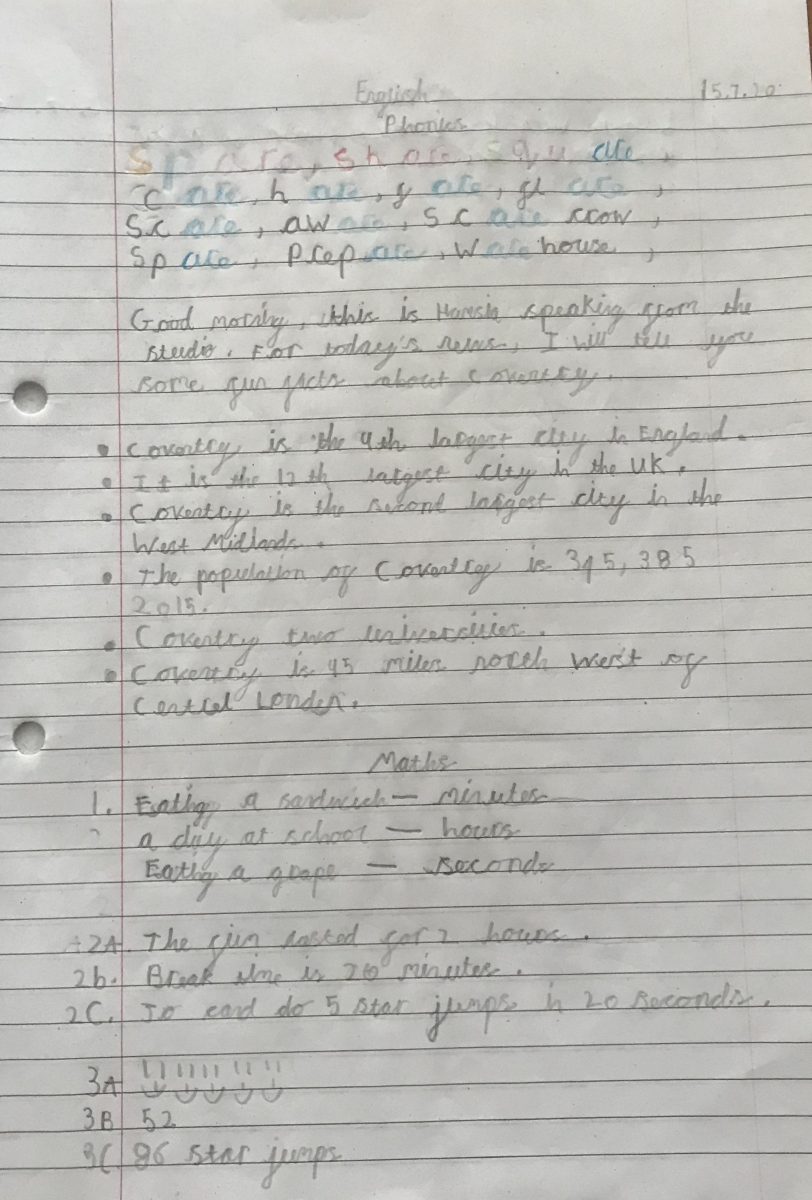 English 15.7.20
Phonics
Spare, share, square,
care, hare, yare, glare,
Scare, aware, Scare crow,
Spare, Prepare, Warehouse,
Good morning, this is speaking from the
studio. For today's news, I will tell you
some fun facts about coventry.
• Coventry is the 4th largest city in England.
• It is the 12th largest city in the UK.
• Coventry is the second largest city in the
West Midlands.
• The population of Coventry is 345,385
2015.
• Coventry two universities.
• Coventry is 95 miles north west of
Central London.
Maths
1. Eating a sandwich — minutes
a day at school — hours
Eating a grape — seconds
2A. The film lasted for 2 hours.
2b. Break time is 20 minutes.
2C. Jo card do 5 star jumps in 20 seconds.
3A
3B 52
3C. 86 star jumps